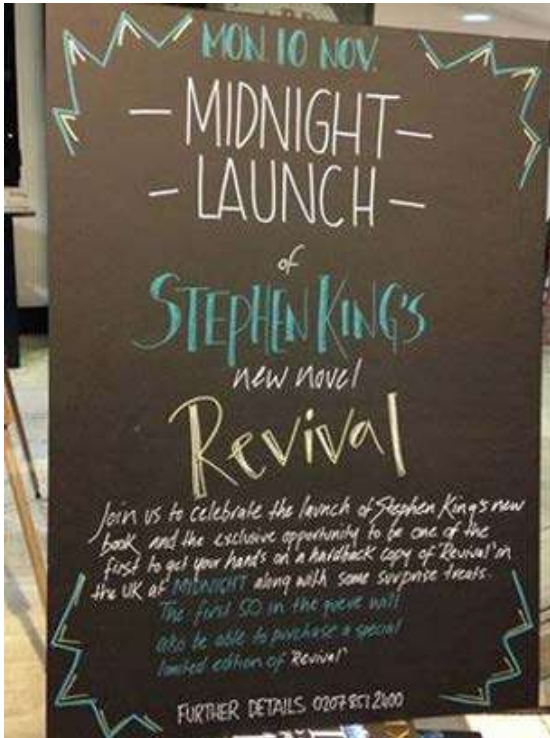 MON. 10 NOV.
– MIDNIGHT –
– LAUNCH –
of
STEPHEN KING'S
new novel
Revival
Join us to celebrate the launch of Stephen King's new
book, and the exclusive opportunity to be one of the
first to get your hands on a hardback copy of 'Revival' in
the UK at MIDNIGHT along with some surprise treats.
The first 50 in the queue will
also be able to purchase a special
limited edition of 'Revival'
FURTHER DETAILS 0207 851 2400